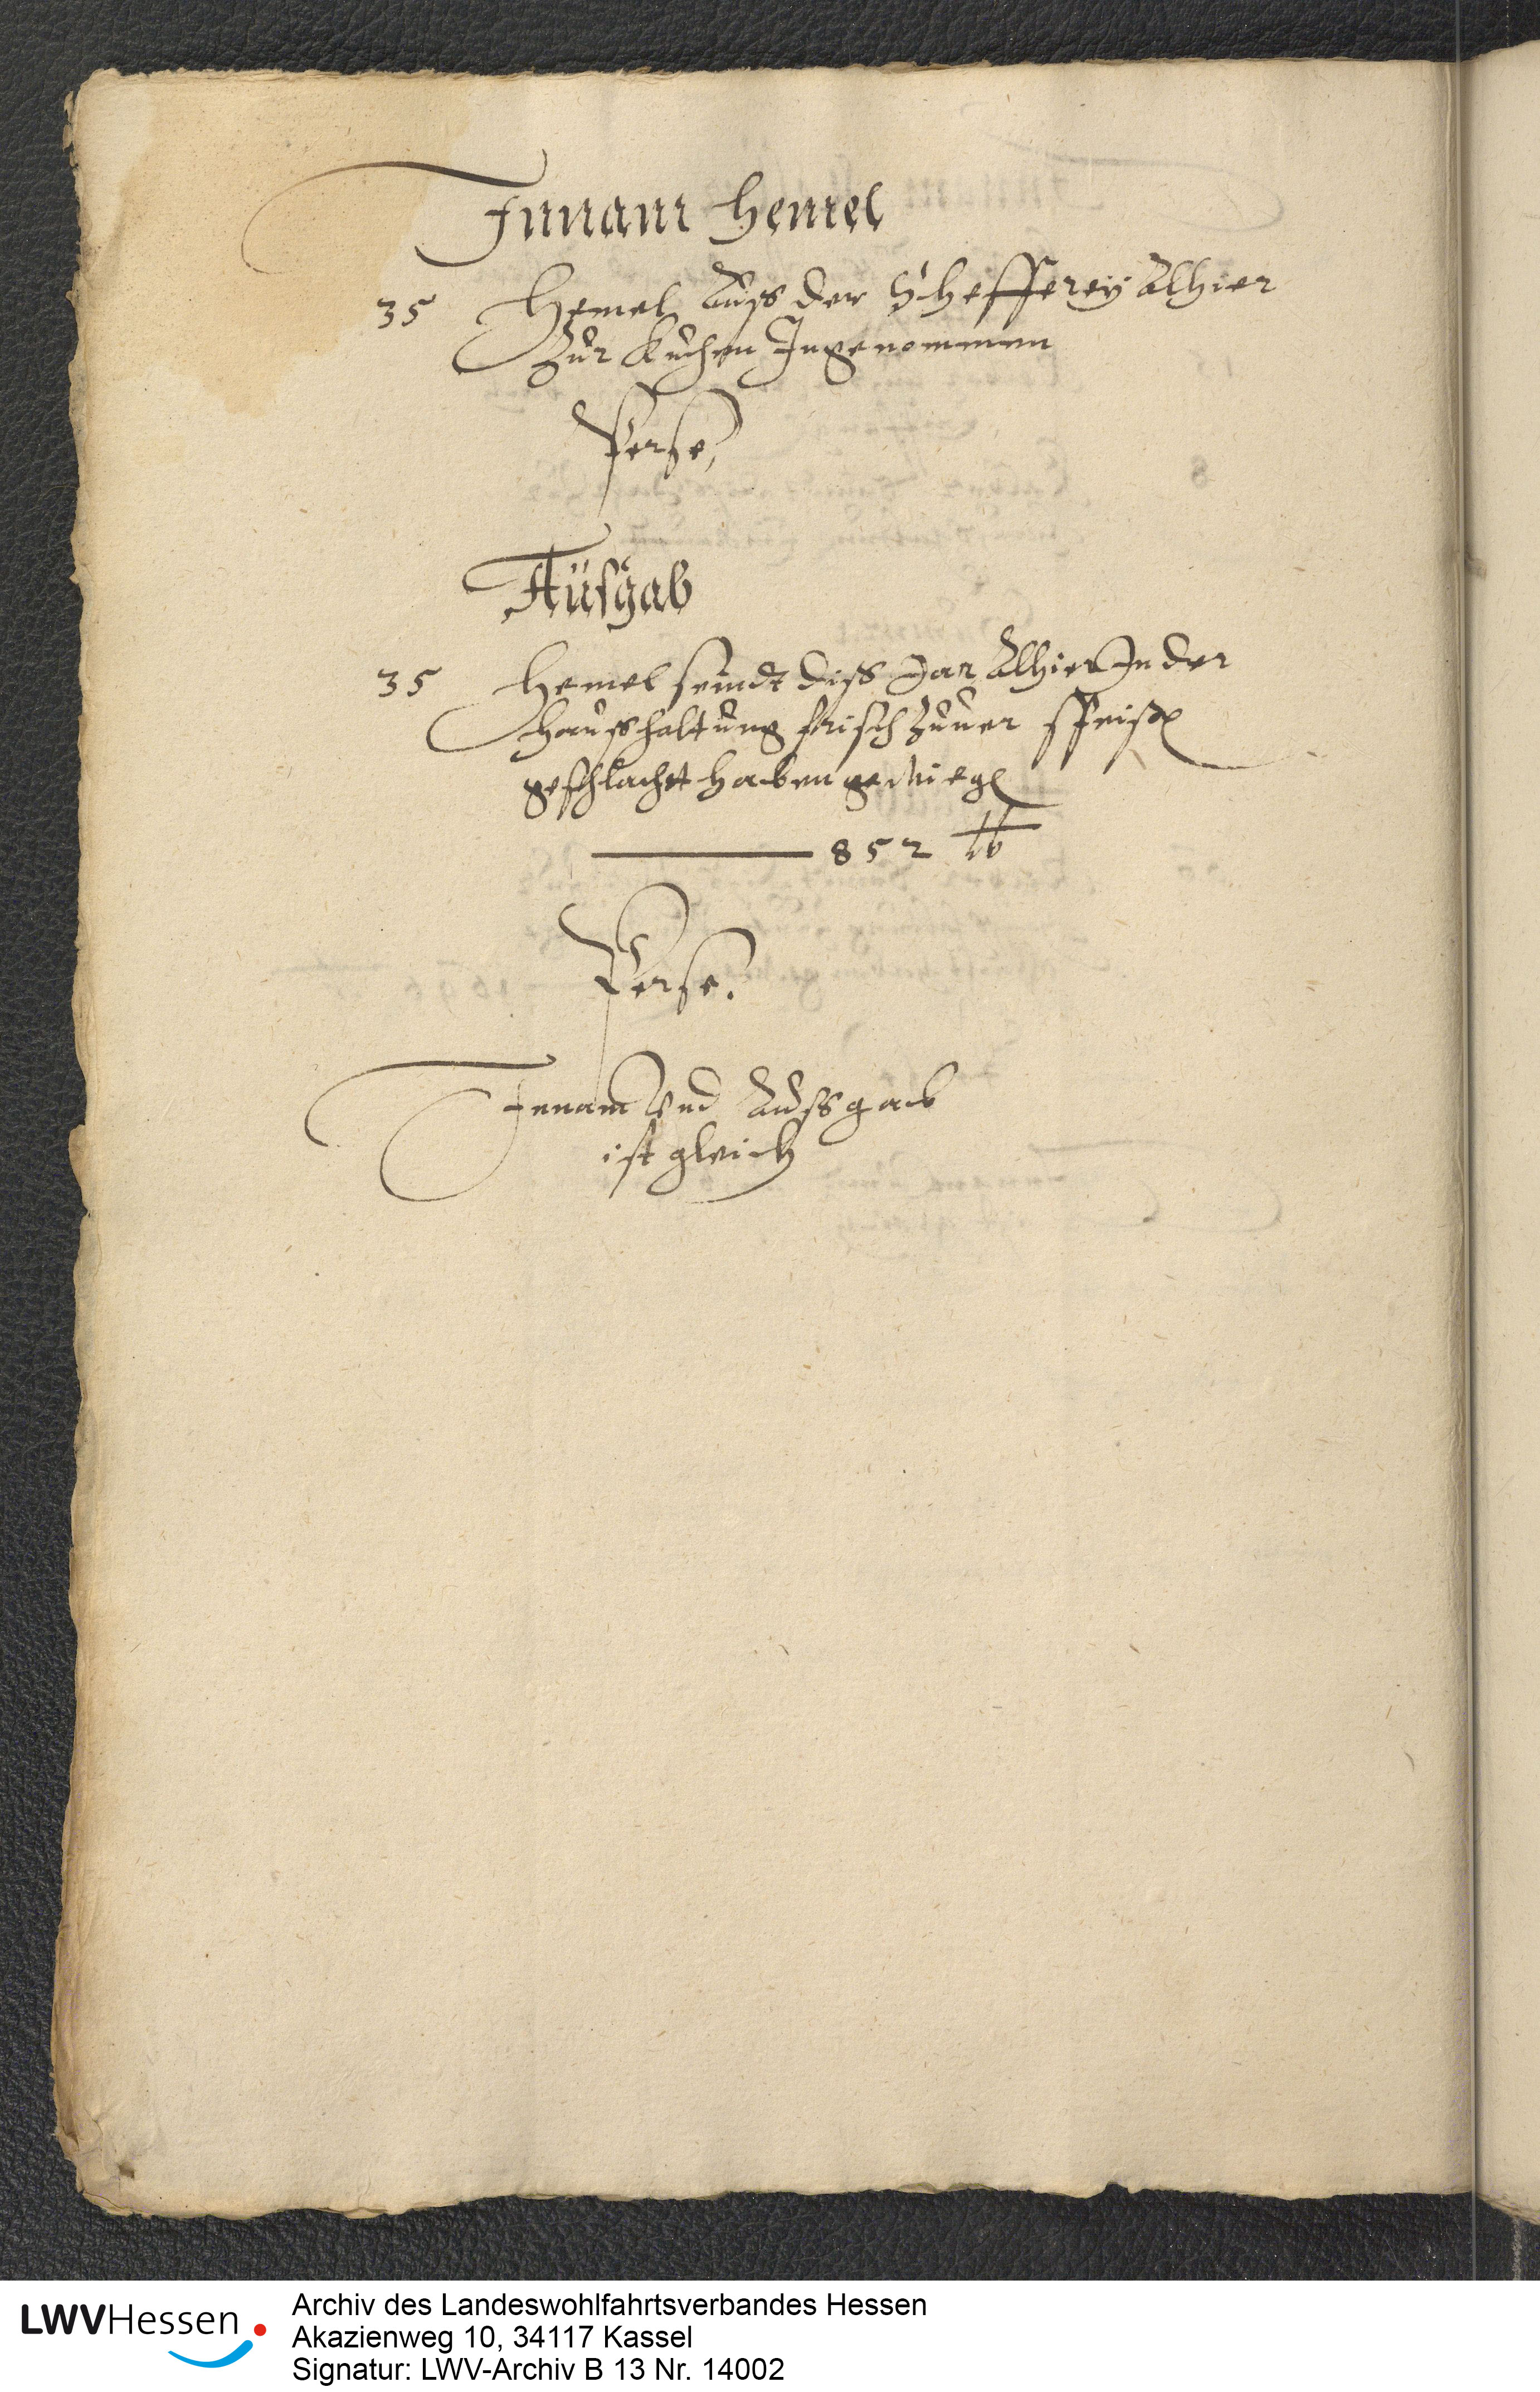 Innam Hemel
35 Hemel Auß der Schefferey Alhier
Zur Kuchen Ingenommen
Per se,
Außgab
35 Hemel seindt diß Jar Alhier In der
Haußhaltung frisch Zuuer speisen
geschlacht haben gewiegen
852 lb
Per se.
Innam Vnd Außgab
ist gleich
LWVHessen
Archiv des Landeswohlfahrtsverbandes Hessen
Akazienweg 10, 34117 Kassel
Signatur: LWV-Archiv B 13 Nr. 14002